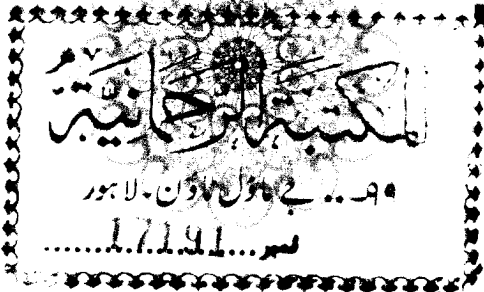 المكتبة الرحمانية
۹۹ .. جے ماڈل ٹاؤن ۔ لاہور
نمبر ...17191.......